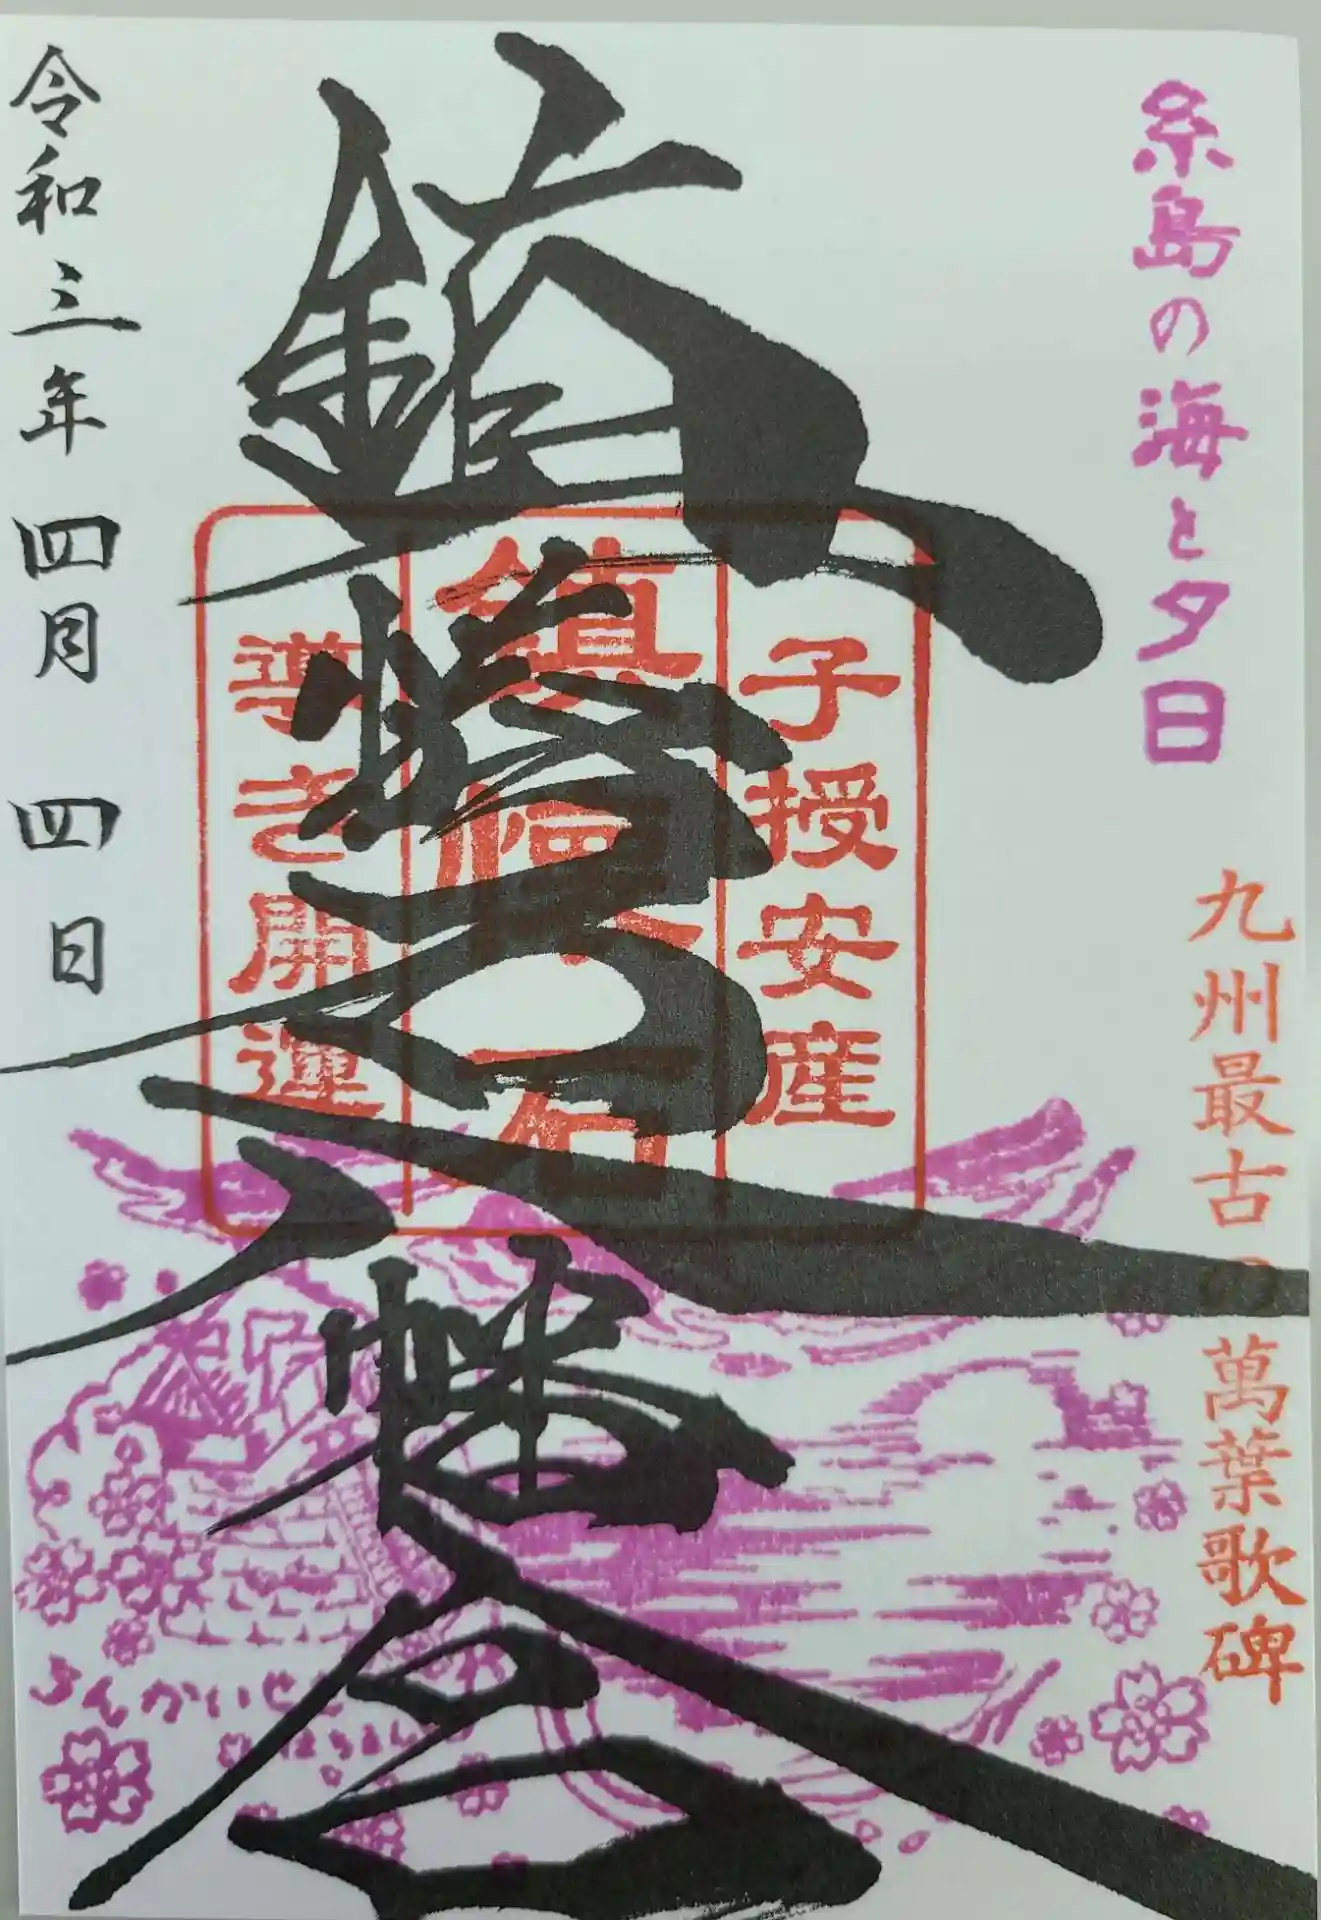 糸島の海と夕日
九州最古の萬葉歌碑
子授安産
鎮懐石
導き開運
鎮懐石八幡宮
ちんかいせき
はちまん
令和三年四月四日